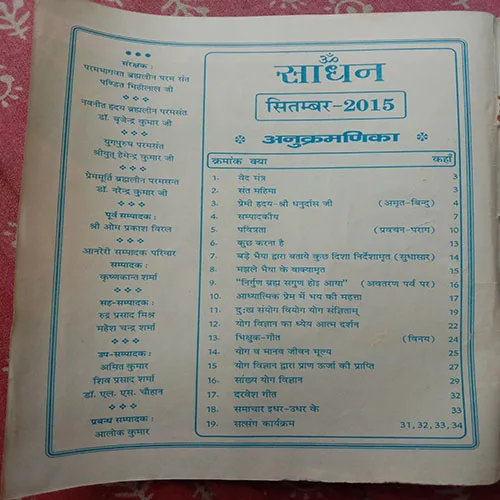 ***
संरक्षक :
परमभागवत ब्रह्मलीन परम संत
पण्डित मिहीलाल जी
❖❖❖
नवनीत हृदय ब्रह्मलीन परमसंत
डॉ. बृजेन्द्र कुमार जी
❖❖❖
युगपुरुष परमसंत
श्रीयुत् हेमेन्द्र कुमार जी
❖❖❖
प्रेममूर्ति ब्रह्मलीन परमसन्त
डॉ. नरेन्द्र कुमार जी
❖❖❖
पूर्व सम्पादक :
श्री ओम प्रकाश विरल
❖❖❖
आनरेरी सम्पादक परिवार
सम्पादक :
कृष्णकान्त शर्मा
❖❖❖
सह-सम्पादक :
रुद्र प्रसाद मिश्र
महेश चन्द्र शर्मा
❖❖❖
उप-सम्पादक :
अमित कुमार
शिव प्रसाद शर्मा
डॉ. एल. एस. चौहान
❖❖❖
प्रबन्ध सम्पादक :
आलोक कुमार
ॐ
साधन
सितम्बर-2015
अनुक्रमणिका
क्रमांक क्या कहाँ
1. वेद मंत्र 3
2. संत महिमा 3
3. प्रेमी हृदय-श्री धनुर्दास जी (अमृत-बिन्दु) 4
4. सम्पादकीय 7
5. पवित्रता (प्रवचन-पराग) 10
6. कुछ करना है 13
7. बड़े भैया द्वारा बताये कुछ दिशा निर्देशामृत (सुधासार) 14
8. मझले भैया के वाक्यामृत 15
9. "निर्गुण ब्रह्म सगुण होइ आया" (अवतरण पर्व पर) 16
10. आध्यात्मिक प्रेम में भय की महत्ता 17
11. दुःख संयोग वियोग योग संज्ञितम् 19
12. योग विज्ञान का ध्येय आत्म दर्शन 22
13. भिक्षुक-गीत (विनय) 24
14. योग व मानव जीवन मूल्य 25
15. योग विज्ञान द्वारा प्राण ऊर्जा की प्राप्ति 27
16. सांख्य योग विज्ञान 29
17. दरवेश गीत 32
18. समाचार इधर-उधर के 33
19. सत्संग कार्यक्रम 31, 32, 33, 34